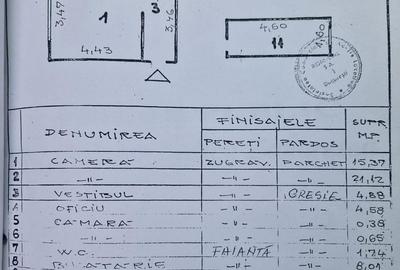 3,47
1
3
3,46
4,43
4,60
11
1,60
DENUMIREA
FINISAJELE
SUPR.
MP.
PEREȚI
PARDOS
1 CAMERĂ ZUGRAV. PARCHET 15,37
2 —"— —"— —"— 21,12
3 VESTIBUL —"— GRESIE 4,88
4 OFICIU —"— —"— 4,58
5 CAMARA —"— —"— 0,36
6 —"— —"— —"— 0,65
7 W.C. FAIANȚĂ —"— 1,24
8 BUCATARIE —"— —"— 8,01